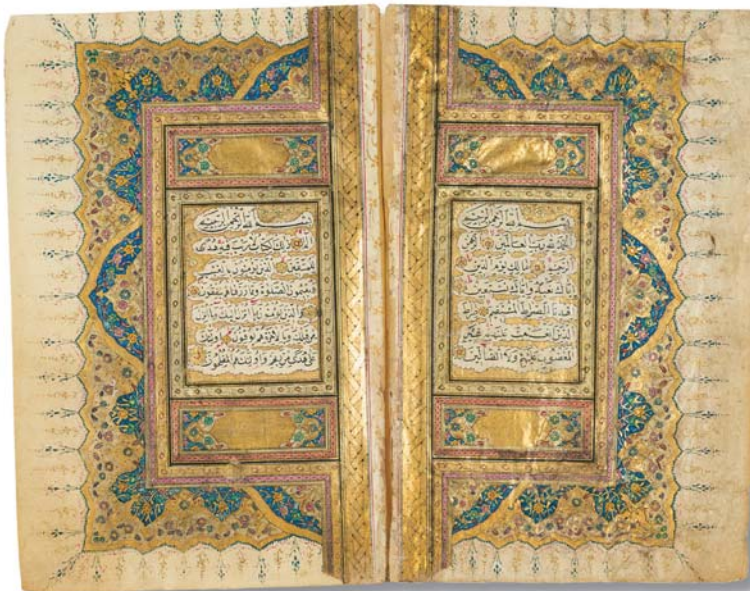 بسم الله الرحمن الرحيم
الحمد لله رب العالمين الرحمن
الرحيم مالك يوم الدين
اياك نعبد واياك نستعين
اهدنا الصراط المستقيم صراط
الذين انعمت عليهم غير
المغضوب عليهم ولا الضالين
بسم الله الرحمن الرحيم
الم ذلك الكتاب لا ريب فيه هدى
للمتقين الذين يؤمنون بالغيب
ويقيمون الصلوة ومما رزقناهم ينفقون
والذين يؤمنون بما انزل اليك وما انزل
من قبلك وبالاخرة هم يوقنون اولئك
على هدى من ربهم واولئك هم المفلحون